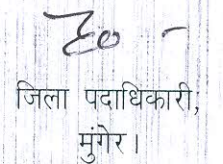 ह० -
जिला पदाधिकारी,
मुंगेर।